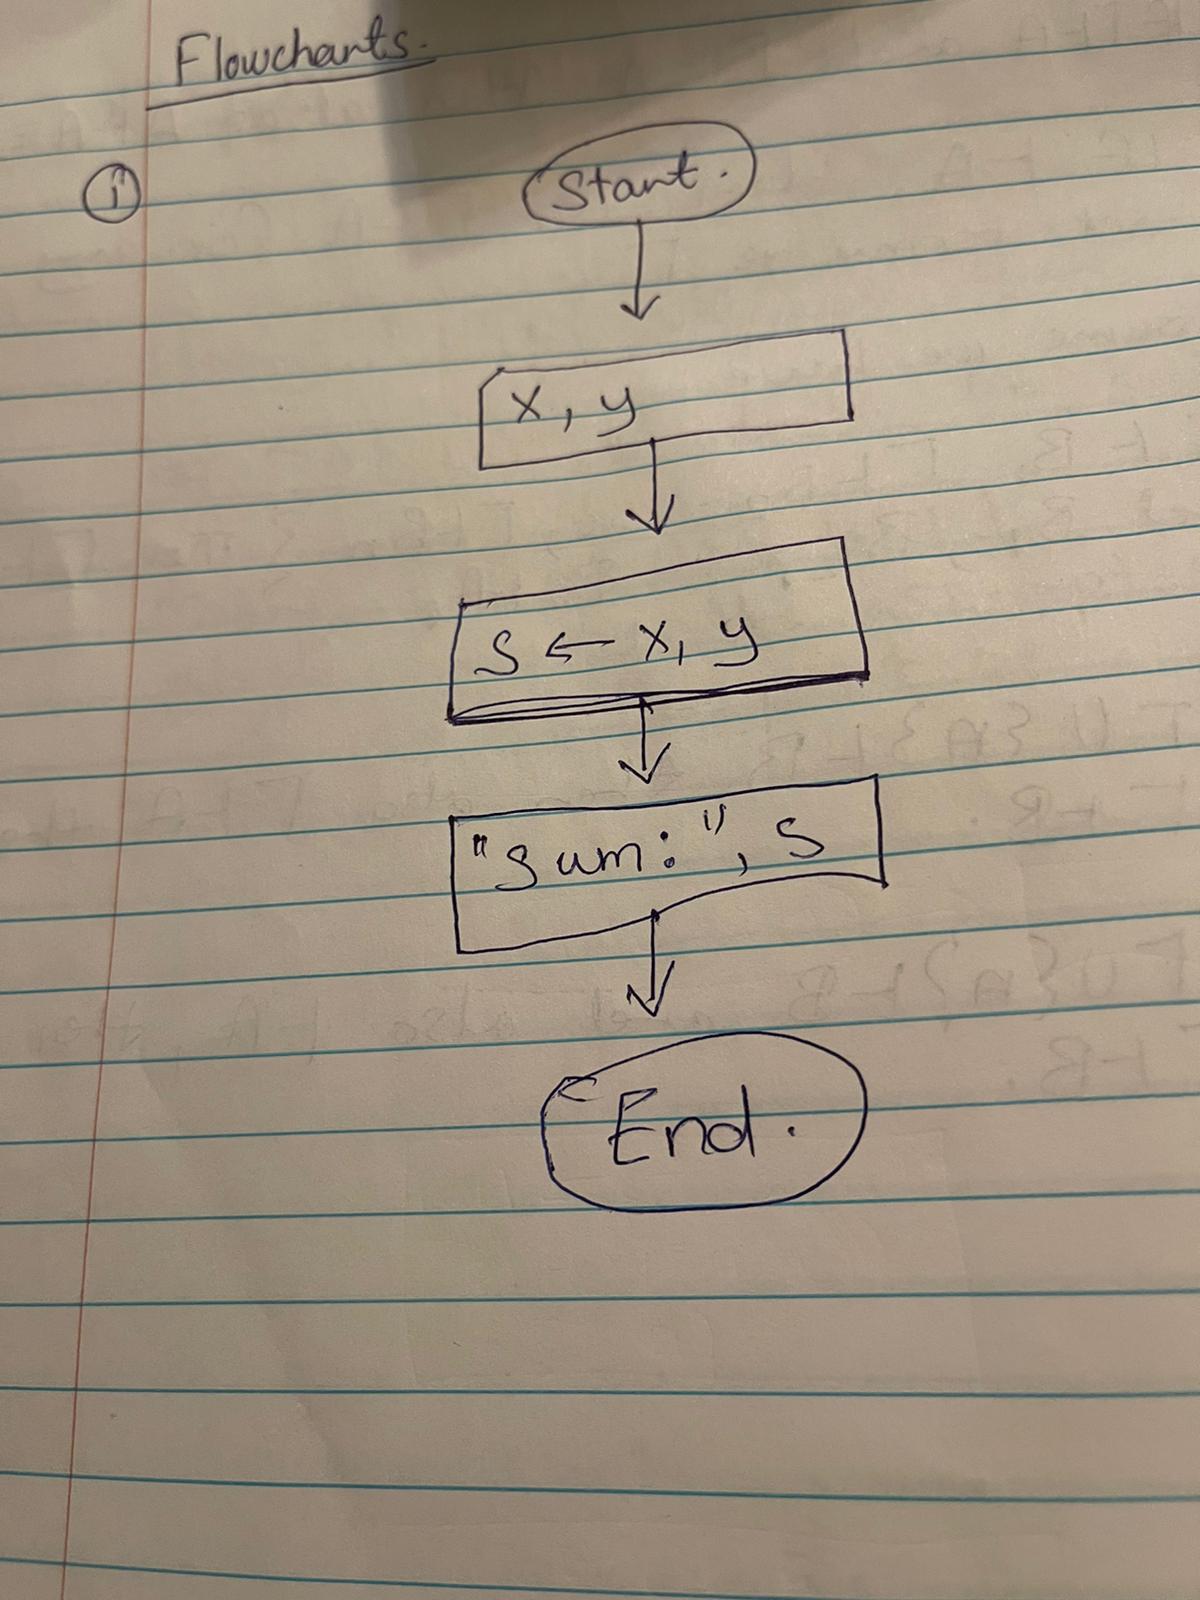 Flowcharts.
①
Start.
x, y
S ← x, y
"Sum:", S
End.